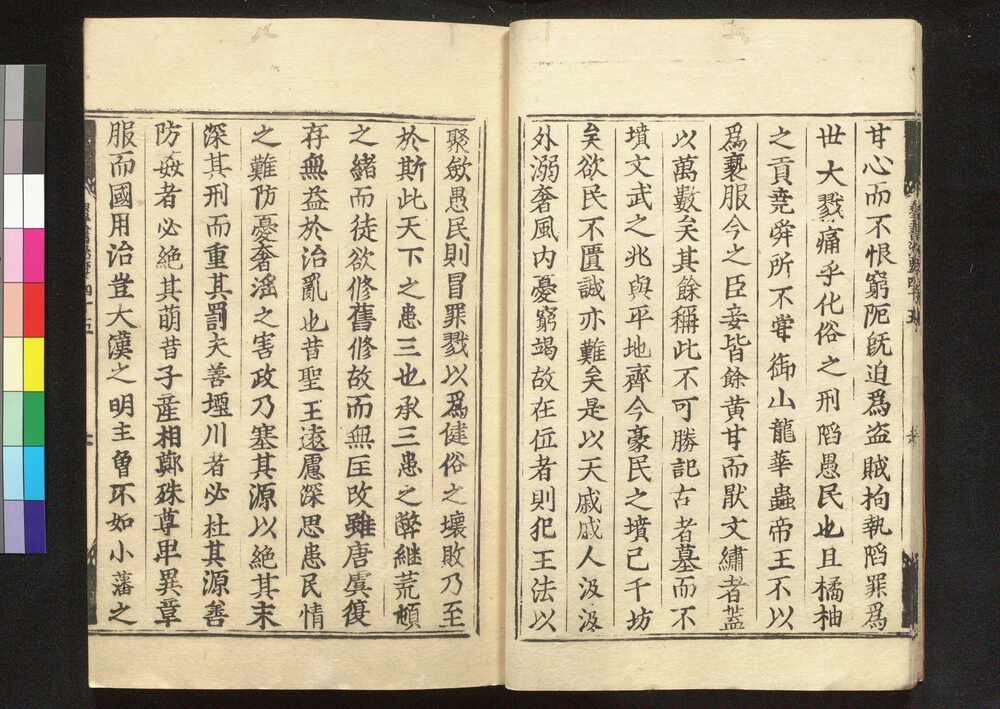 甘心而不恨窮阨旣迫爲盗賊拘執陷罪爲
世大戮痛乎化俗之刑陷愚民也且橘柚
之貢堯舜所不甞御山龍華蟲帝王不以
爲褻服今之臣妾皆餘黄甘而厭文繡者蓋
以萬數矣其餘稱此不可勝記古者墓而不
墳文武之兆與平地齊今豪民之墳已千坊
矣欲民不匱誠亦難矣是以天戚戚人汲汲
外溺奢風内憂窮竭故在位者則犯王法以
聚斂愚民則冒罪戮以爲健俗之壞敗乃至
於斯此天下之患三也承三患之弊継荒頓
之緒而徒欲修舊修故而無匡改雖唐虞復
存無益於治亂也昔聖王遠慮深思患民情
之難防憂奢滛之害政乃塞其源以絶其末
深其刑而重其罰夫善堙川者必杜其源善
防姦者必絶其萌昔子産相鄭殊尊卑異章
服而國用治豈大漢之明主曽不如小藩之